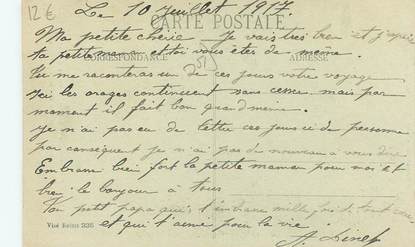 12 €
Le 10 Juillet 1917.
CARTE POSTALE
Ma petite chérie Je vais très bien et j'espère
ta petite maman et toi vous êtes de même.
CORRESPONDANCE
ADRESSE
Tu me raconteras un de ces jours votre voyage
Ici les orages continuent sans cesse mais par
moment il fait bon quand même.
Je n'ai pas eu de lettre ces jours ci de personne
par conséquent je n'ai pas de nouveau a vous dire
Embrasse bien fort la petite maman pour moi et
bien le bonjour à tous
Ton petit papa qui t'embrasse mille fois
et qui t'aime pour la vie
Visé Paris 236